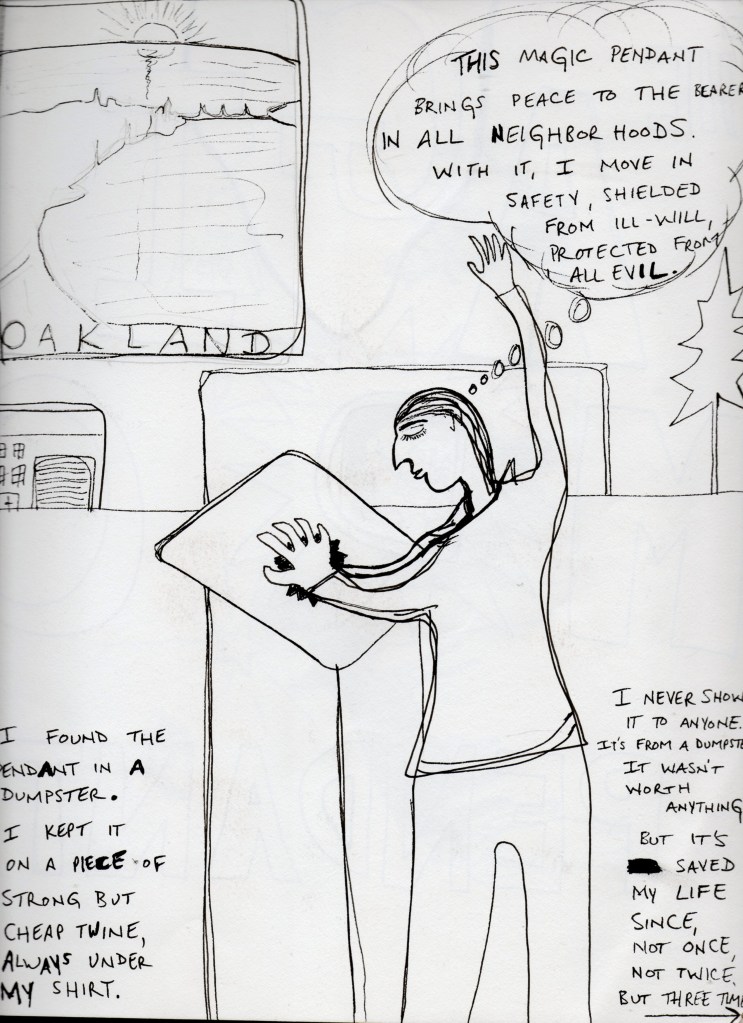 THIS MAGIC PENDANT
BRINGS PEACE TO THE BEARER
IN ALL NEIGHBORHOODS.
WITH IT, I MOVE IN
SAFETY, SHIELDED
FROM ILL-WILL,
PROTECTED FROM
ALL EVIL.
OAKLAND
I FOUND THE
PENDANT IN A
DUMPSTER.
I KEPT IT
ON A PIECE OF
STRONG BUT
CHEAP TWINE,
ALWAYS UNDER
MY SHIRT.
I NEVER SHOW
IT TO ANYONE.
IT'S FROM A DUMPSTE
IT WASN'T
WORTH
ANYTHING
BUT IT'S
SAVED
MY LIFE
SINCE,
NOT ONCE,
NOT TWICE,
BUT THREE TIME